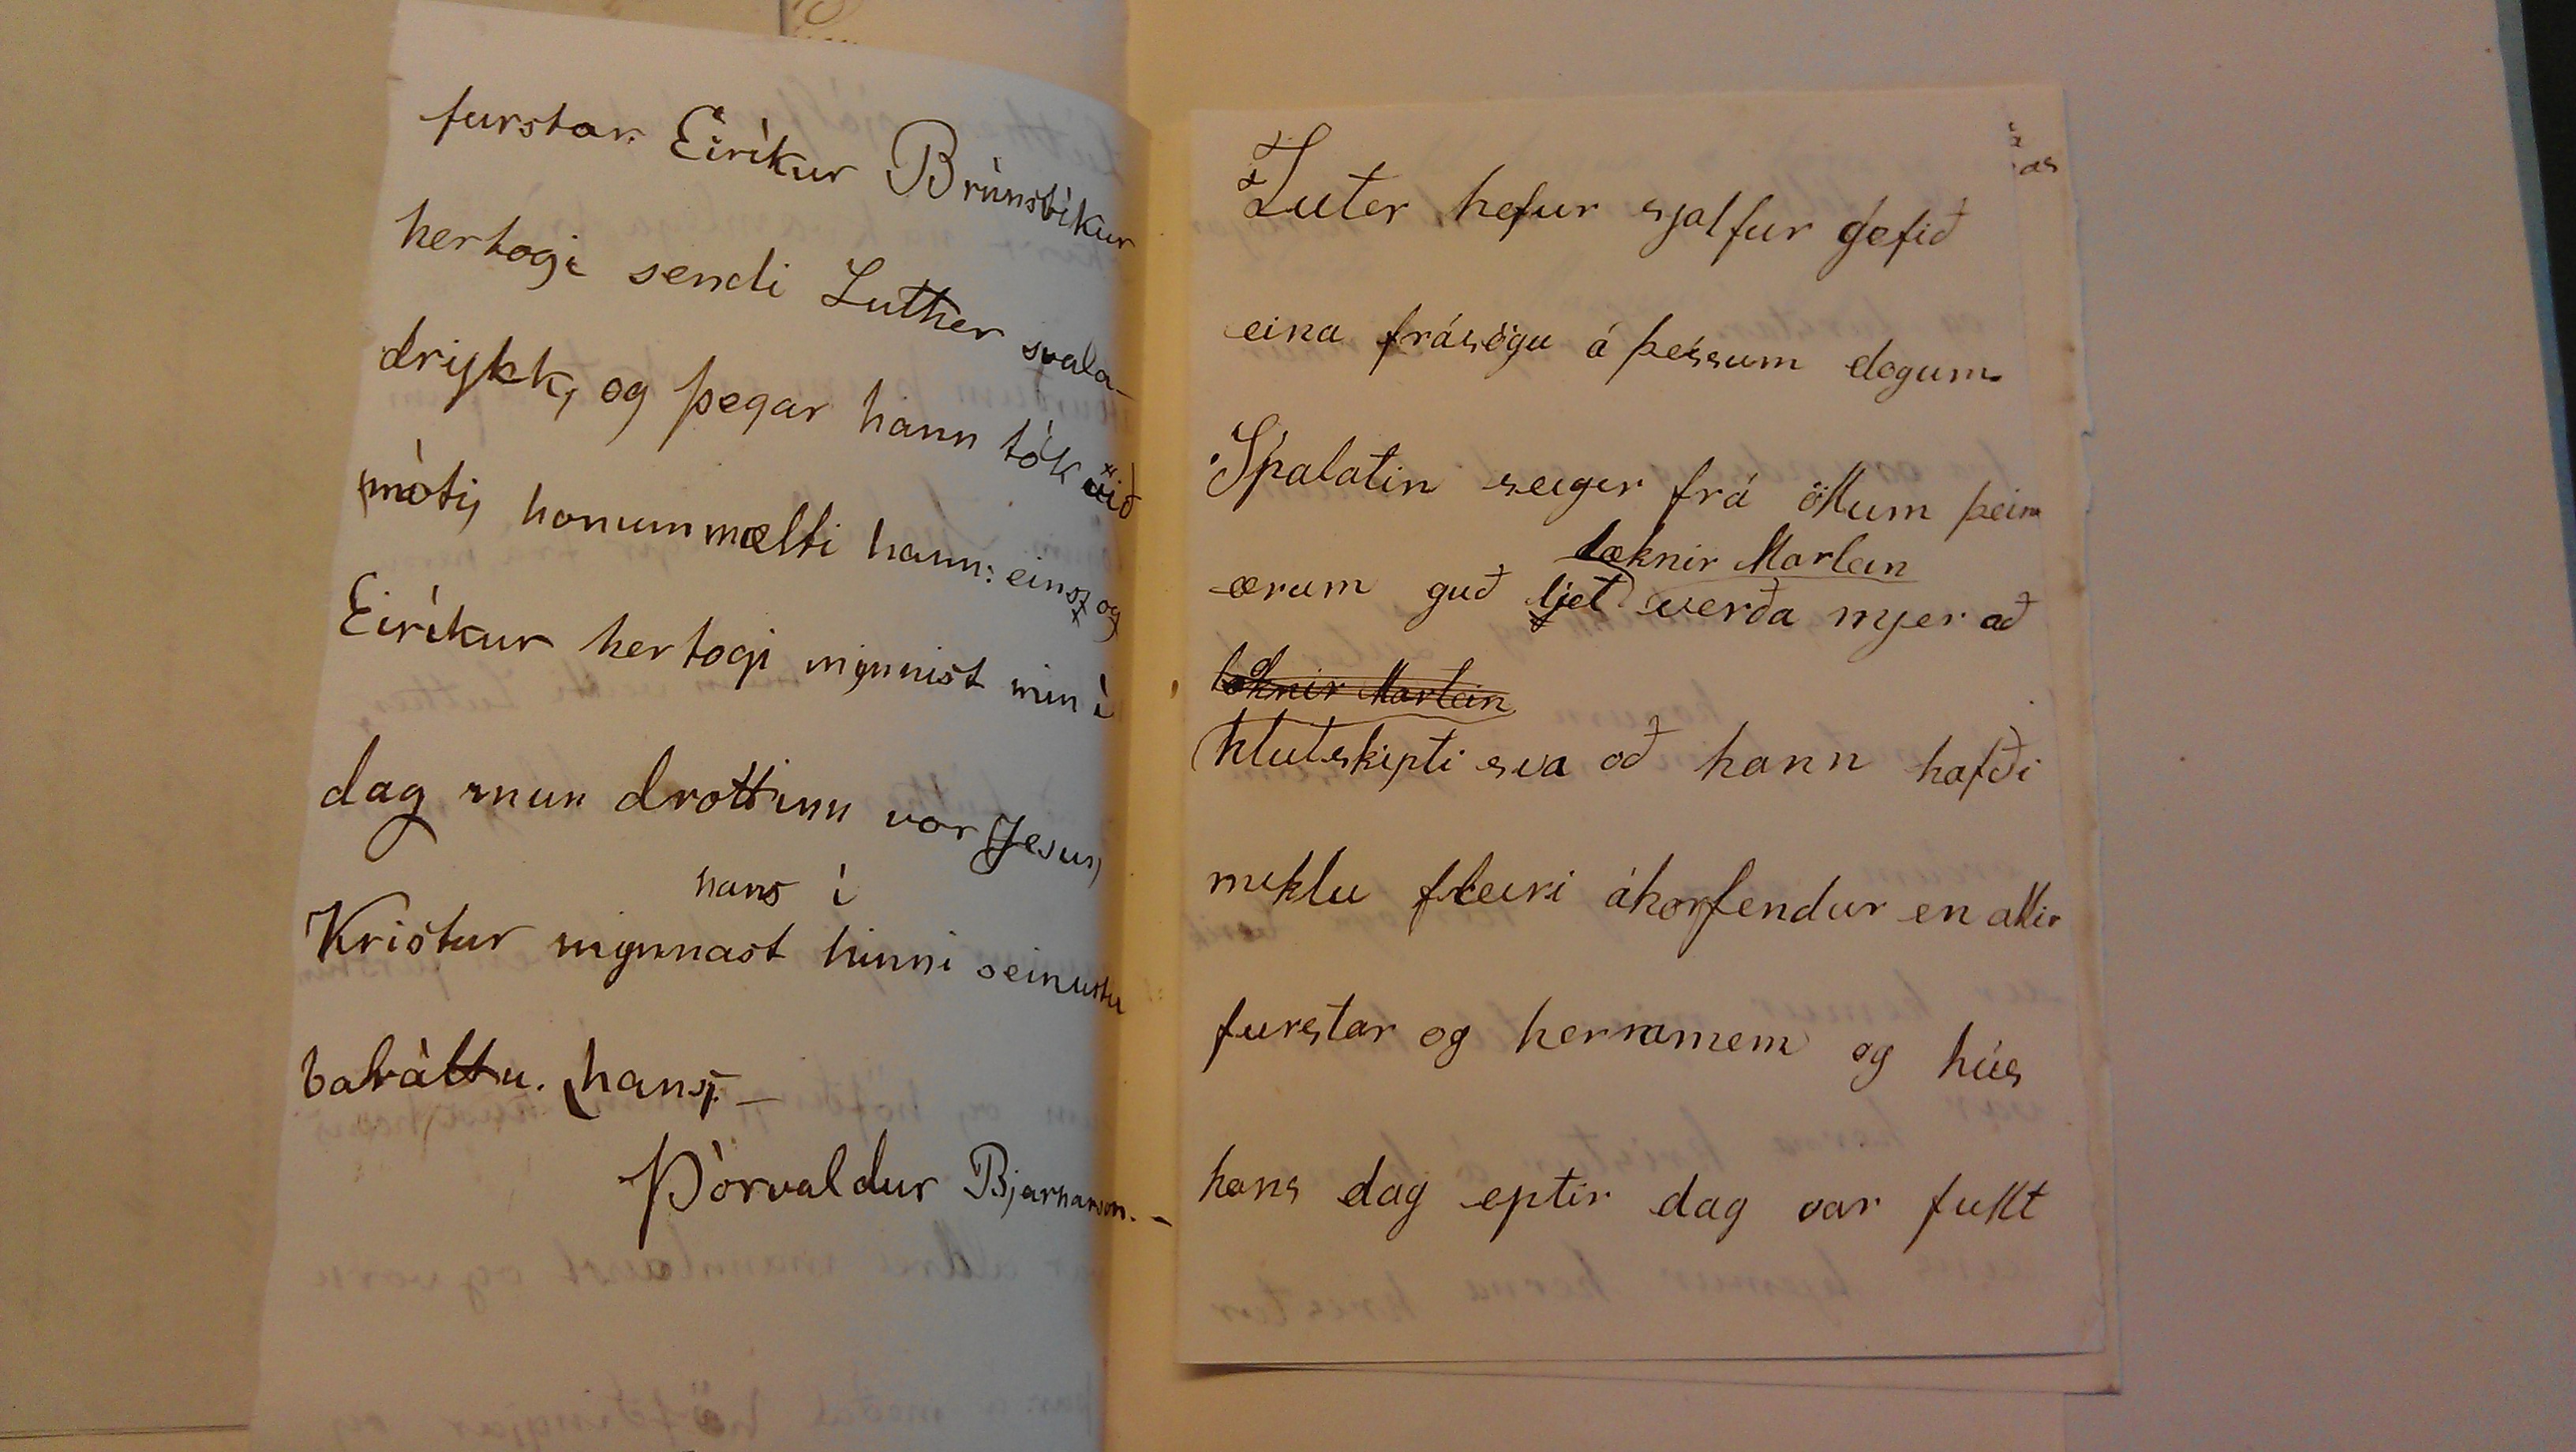 furstar. Eiríkur Brúnsvíkur
hertogi sendi Luther svala-
drykk, og þegar hann tók við
móti honum mælti hann: eins og
Eiríkur hertogi mynnist min í
dag mun drottinn vor Jesus
hans í
Kristur mynnast hinni seinustu
baráttu. hans. –
Þòrvaldur Bjarnarson. –
Luter hefur sjalfur gefið
eina frásögu á þessum dogum.
Spalatin seiger frá öllum þeim
læknir Marlein
ærum guð ljet verða mjer að
læknir Martein
hlutskipti sva að hann hafði
miklu fleiri áhorfendur en allir
furstar og herramenn og hús
hans dag eptir dag var fullt